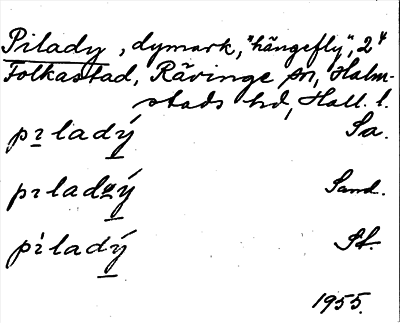 Pilady, dymark, "hängefly", 2 4
Folkastad, Rävinge sn, Halm-
stads hd, Hall. l.
pɪladý Sa.
pɪladəý Sand.
pìladý St.
1955.